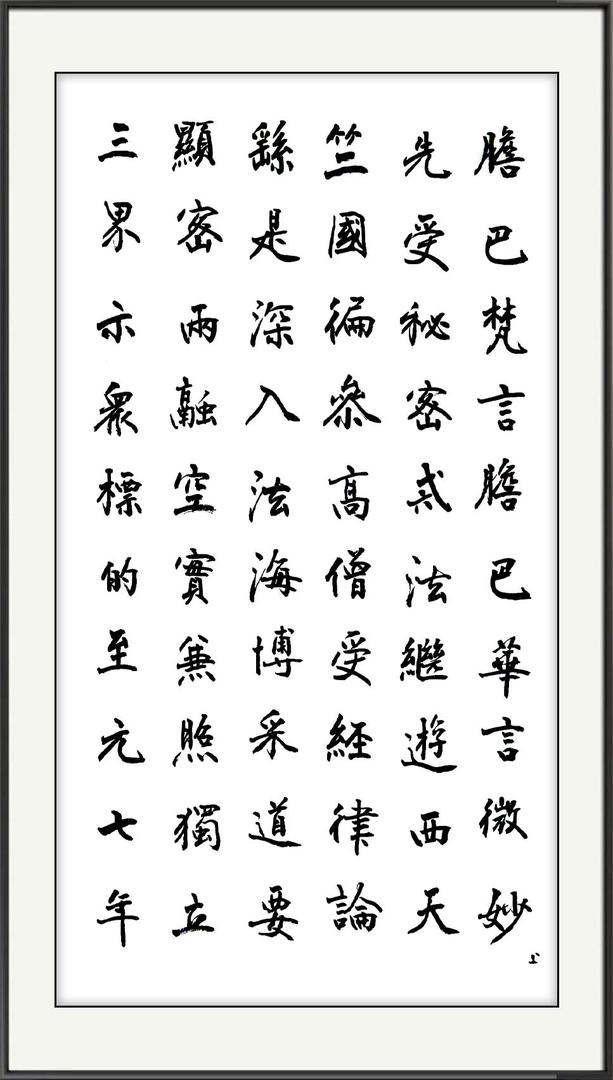 膽巴梵言膽巴華言微妙
先受秘密戒法繼遊西天
竺國徧參高僧受經律論
繇是深入法海博采道要
顯密兩融空實兼照獨立
三界示眾標的至元七年